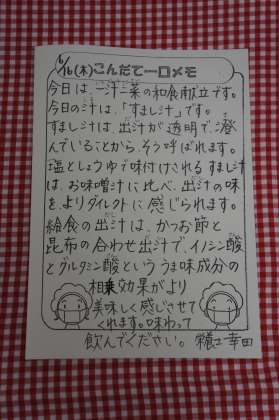 6/16(木)こんだて一口メモ
今日は、一汁二菜の和食献立です。
今日の汁は、「すまし汁」です。
すまし汁は、出汁が透明で、澄
んでいることから、そう呼ばれます。
塩としょうゆで味付けされるすまし汁
は、お味噌汁に比べ、出汁の味
を、よりダイレクトに感じられます。
給食の出汁は、かつお節と
昆布の合わせ出汁で、イノシン酸
とグルタミン酸といううま味成分の
相乗効果がより
美味しく感じさせて
くれます。味わって
飲んでください。 幸田